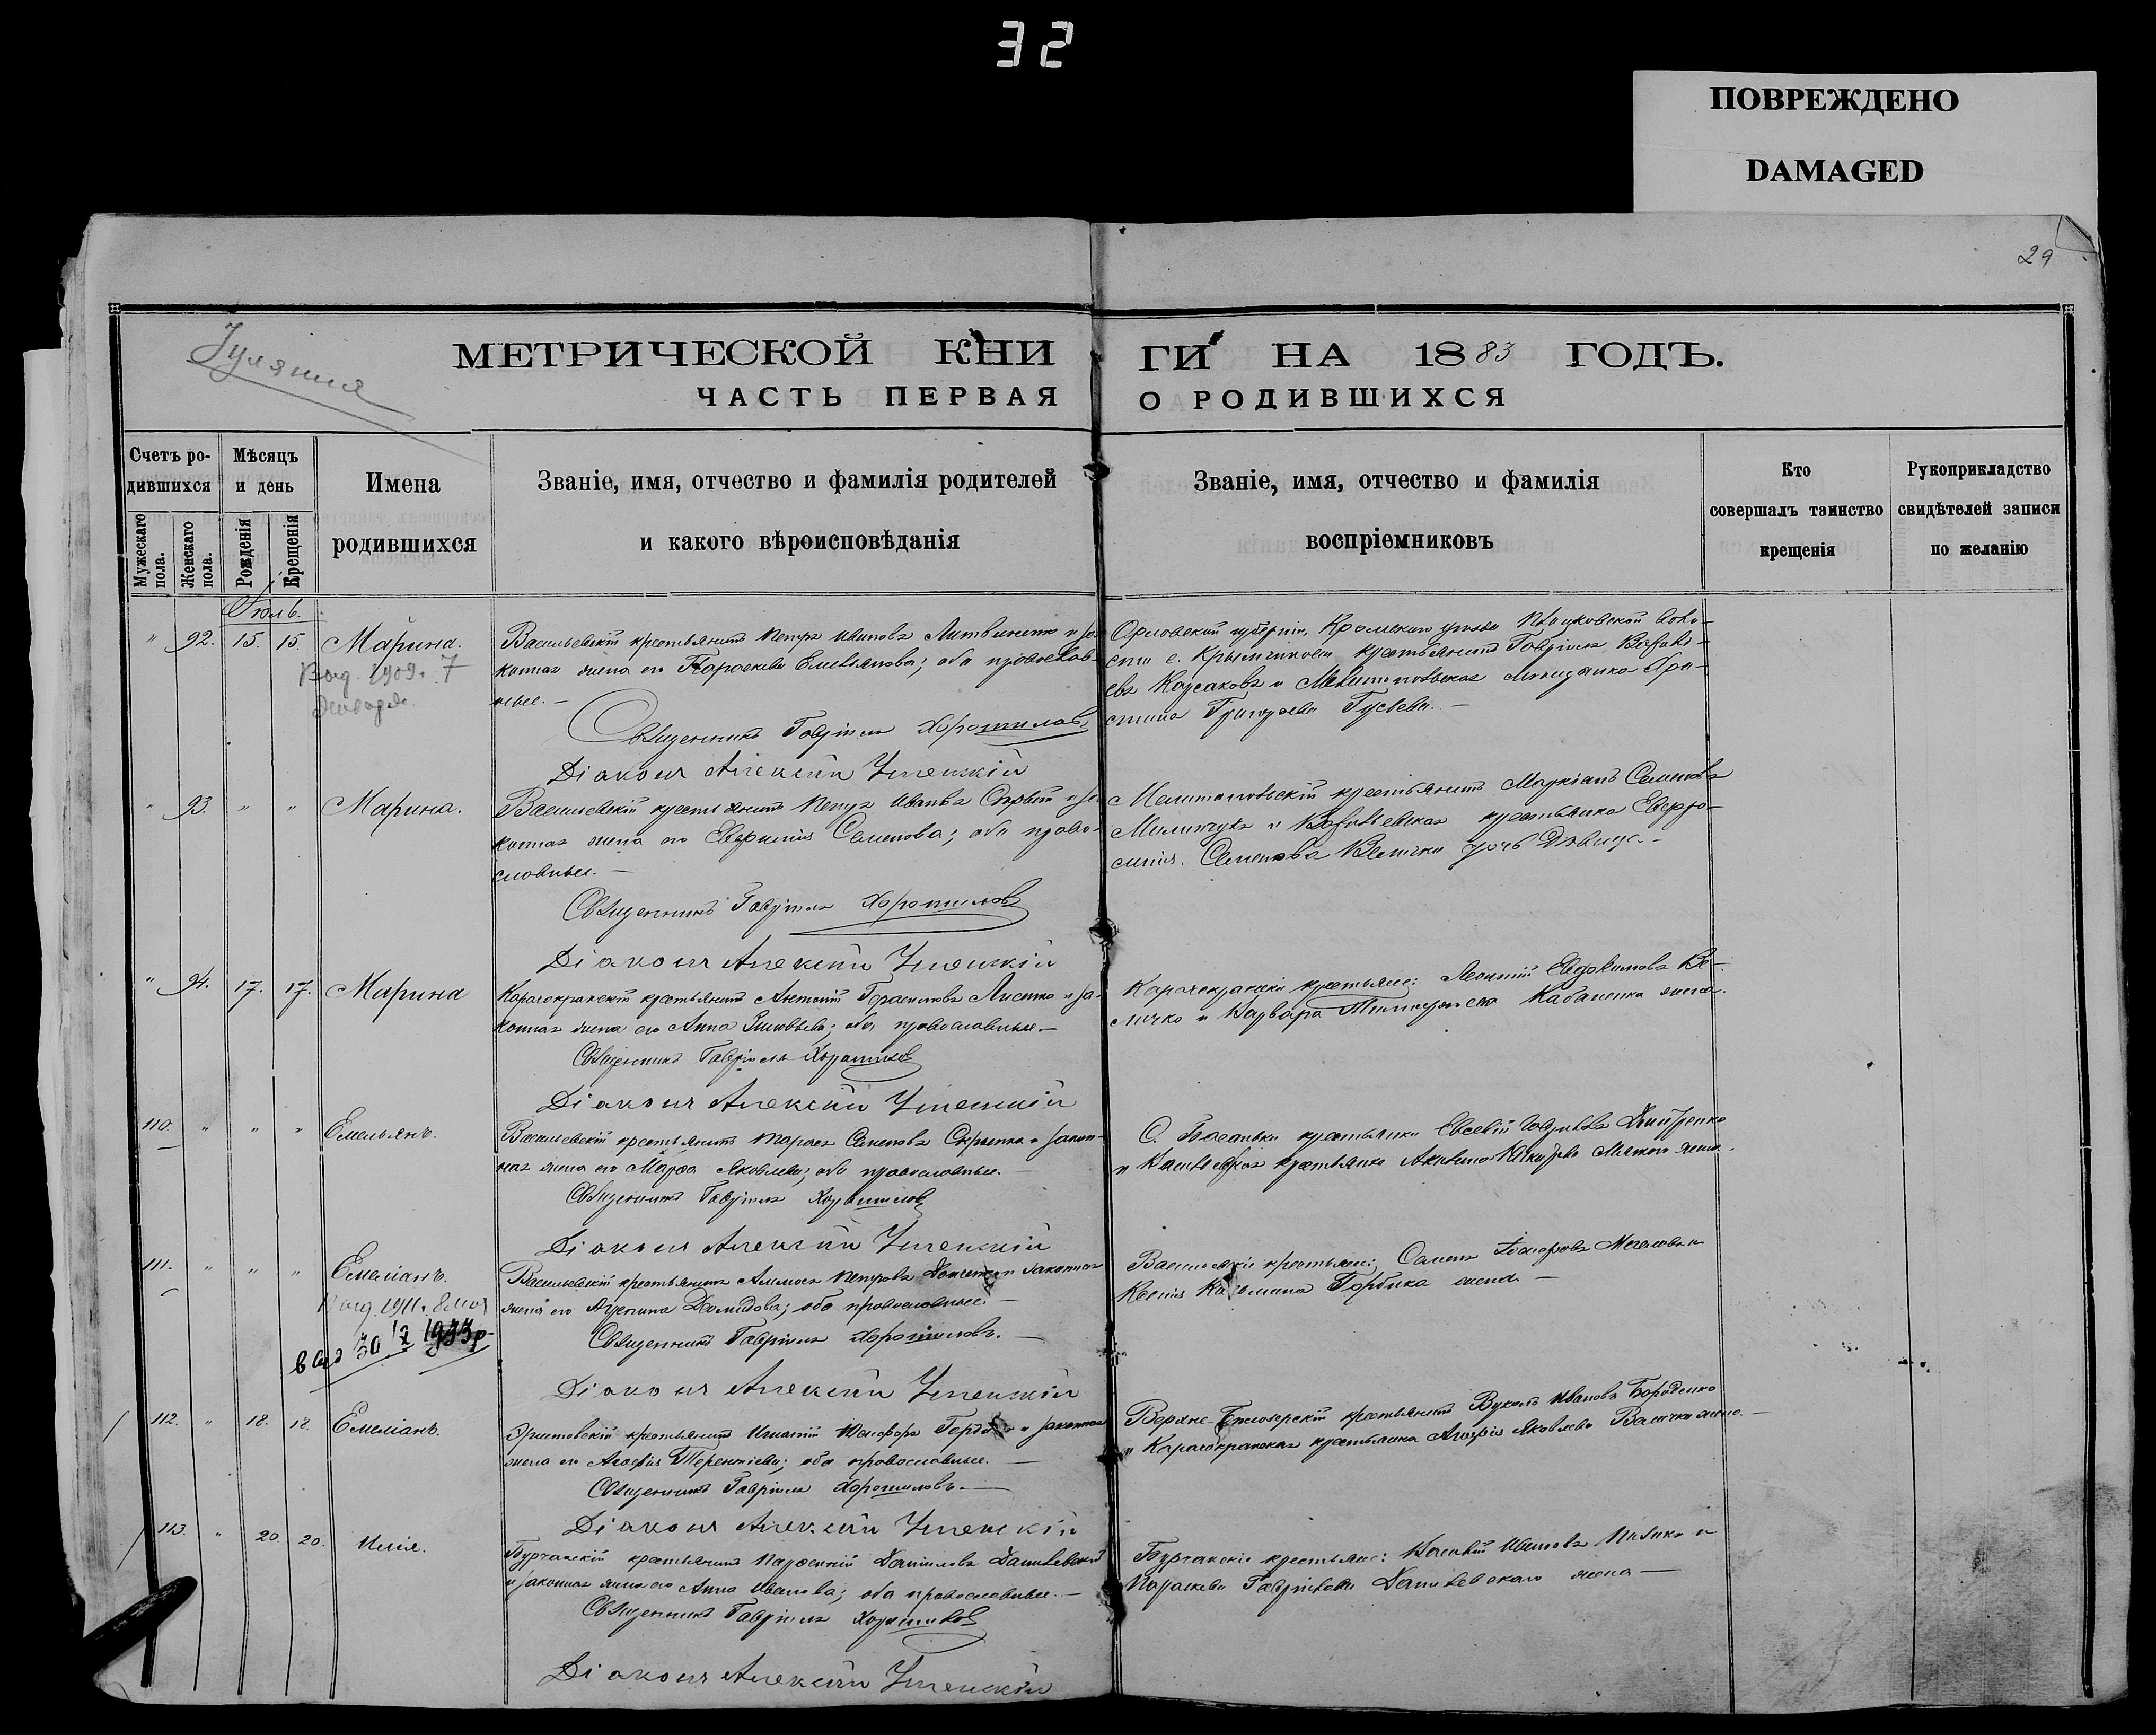 32
ПОВРЕЖДЕНО
DAMAGED
29
Іулянія
МЕТРИЧЕСКОЙ КНИ ГИ НА 1883 ГОДЪ.
ЧАСТЬ ПЕРВАЯ О РОДИВШИХСЯ
Счетъ ро-
дившихся
Мужескаго пола.
Женскаго пола.
Мѣсяцъ
и день
Рожденія
Крещенія
Имена
родившихся
Званіе, имя, отчество и фамилія родителей
и какого вѣроисповѣданія
Званіе, имя, отчество и фамилія
воспріемниковъ
Кто
совершалъ таинство
крещенія
Рукоприкладство
свидѣтелей записи
по желанію
Іюль.
" 92. 15. 15. Марина.
Выд. 1909 г. 7
Января
Васильевскій крестьянинъ Петръ Ивановъ Литвиненко и за-
конная жена его Параскева Емельянова; оба православ-
ные. —
Священникъ Гавріилъ Хорошиловъ
Діаконъ Алексѣй Успенскій
Орловской губерніи, Кромскаго уѣзда волo-
сти с. крестьянинъ Гавріилъ
евъ Корсаковъ и Мелитопольская мѣщанка Хри-
стина Григорьева Гусева. —
" 93. " " Марина.
Васильевскій крестьянинъ Петръ Ивановъ и за-
конная жена его Евфимія Семенова; оба право-
славные. —
Священникъ Гавріилъ Хорошиловъ
Діаконъ Алексѣй Успенскій
Мелитопольскій крестьянинъ Маркіанъ Семеновъ
и Васильевская крестьянка Евфро-
синія Семенова Велички дочь Дѣвица. —
" 94. 17. 17. Марина
Карачокракскій крестьянинъ Антоній Герасимовъ Лисенко и за-
конная жена его Анна Зиновьева; оба православные. —
Священникъ Гавріилъ Хорошиловъ
Діаконъ Алексѣй Успенскій
Карачокракскіе крестьяне: Леонтій Евдокимовъ Ве-
личко и Варвара Кабаненка жена.
110. " " " Емельянъ.
Васильевскій крестьянинъ Тарасъ Семеновъ и закон-
ная жена его Марфа Яковлева; оба православные. —
Священникъ Гавріилъ Хорошиловъ
Діаконъ Алексѣй Успенскій
С. крестьянинъ Евсевій Дмитренко
и Васильевская крестьянка Акилина жена.
111. " " " Емеліанъ.
Выд. 1911 г. 8 мая
выд 30 1933 р.
Васильевскій крестьянинъ Петровъ и законная
жена его Агрепина Демидова; оба православные. —
Священникъ Гавріилъ Хорошиловъ. —
Діаконъ Алексѣй Успенскій
Васильевскіе крестьяне: и
Ксенія Горбика жена —
112. " 18. 18. Емеліанъ.
Эристовскій крестьянинъ Игнатій и законная
жена его Агафія Терентіева; оба православные. —
Священникъ Гавріилъ Хорошиловъ. —
Діаконъ Алексѣй Успенскій
Верхне-Бѣлозерскій крестьянинъ Вуколъ Ивановъ Бороденко
и Карачокракская крестьянка Агафія Яковлева Величка жена. —
113. " 20. 20. Илія.
Бурчакскій крестьянинъ Парѳеній Даниловъ Данилевскій
и законная жена его Анна Иванова; оба православные. —
Священникъ Гавріилъ Хорошиловъ
Діаконъ Алексѣй Успенскій
Бурчакскіе крестьяне: Василій Ивановъ и
Параскева Гавріилова Данилевскаго жена —